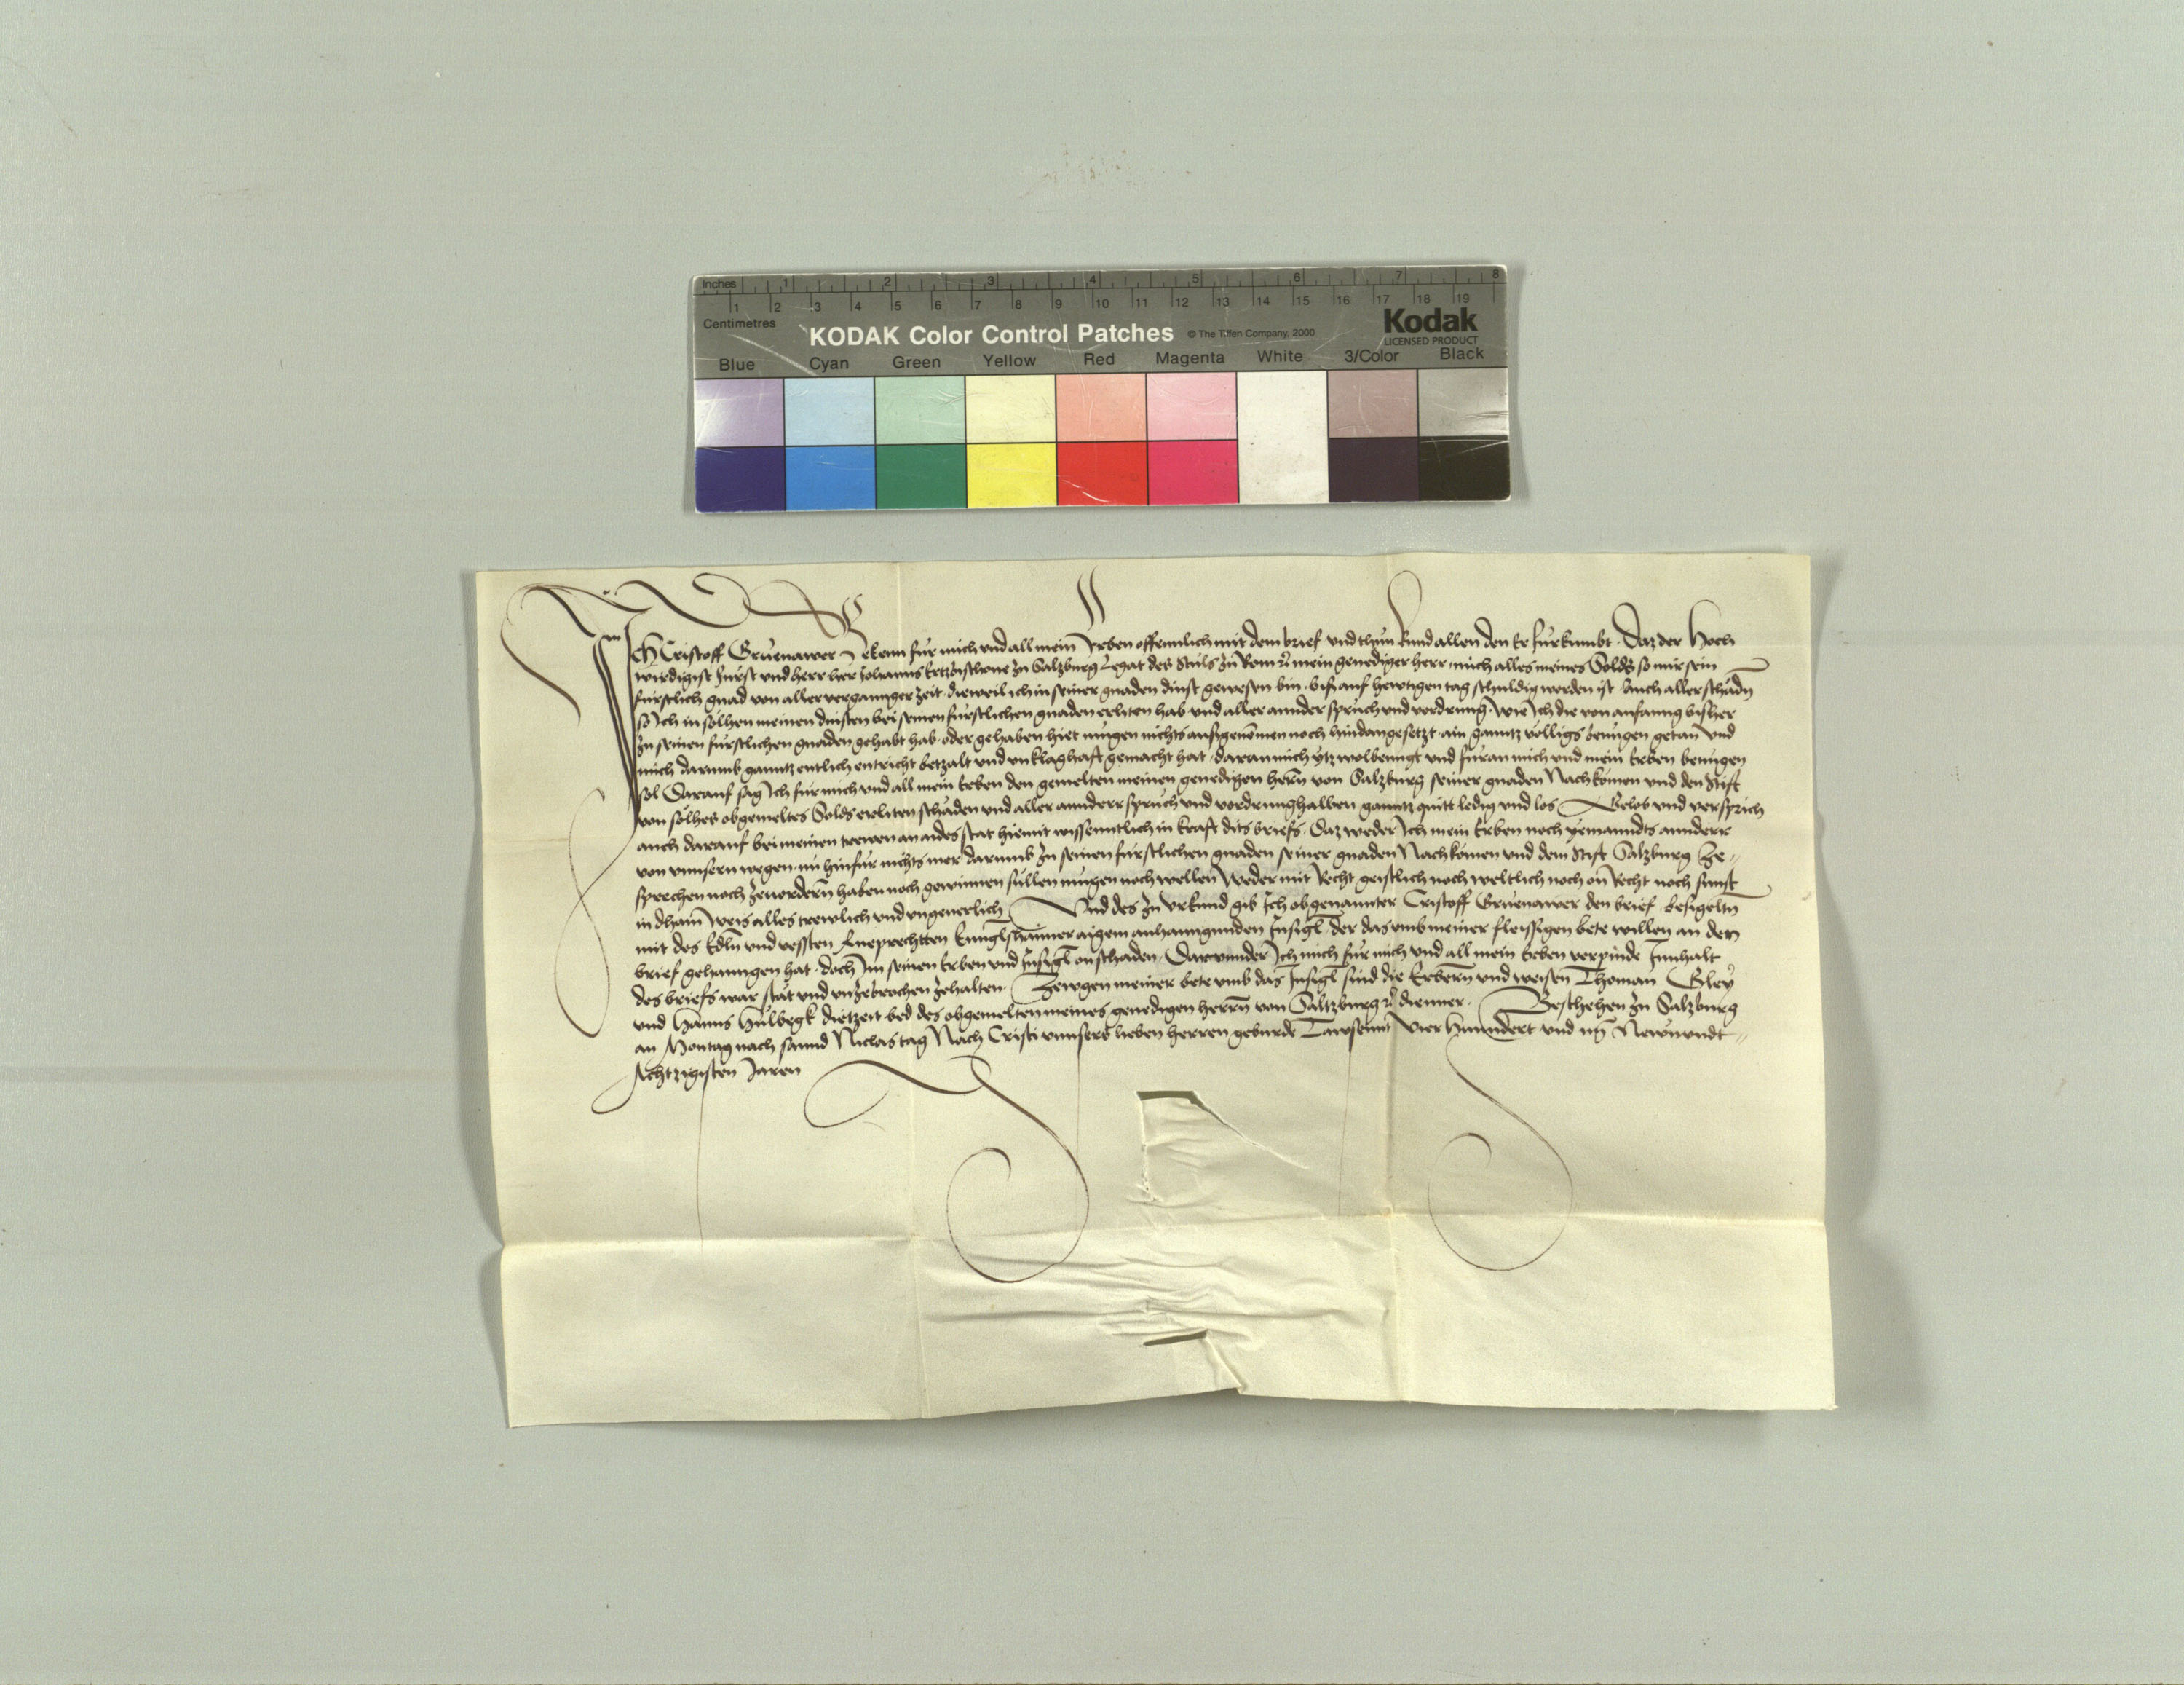 Inches 1 2 3 4 5 6 7 8
1 2 3 4 5 6 7 8 9 10 11 12 13 14 15 16 17 18 19
Centimetres
KODAK Color Control Patches © The Tiffen Company, 2000 Kodak
LICENSED PRODUCT
Blue Cyan Green Yellow Red Magenta White 3/Color Black
Ich Cristoff Grüenawer Bekenn für mich und all mein Erben offennlich mit dem brief und thun kund allen den er fürkumbt. Daz der Hoch
wirdigist fürst und herr her Johanns Ertzbischove zu Salzburg Legat des Stuls zu Rom mein genediger herr mich alles meines Solds so mir sein
fürstlich gnad von aller verganngner zeit. dieweil ich in seiner gnaden dinst gewesen bin. bis auf hewtigen tag schuldig worden ist. Auch aller schädn
so Ich in solhen meinen dinsten bei seinen fürstlichen gnaden erliten hab und aller annder spruch und vordrung. wie Ich die von anfanng bisher
zu seinen fürstlichen gnaden gehabt hab. oder gehaben hiet mugen nichts ausgenomen noch hindangesetzt. ain ganntz völligs benügen getan und
mich darumb ganntz entlich entricht betzalt und unklaghaft gemacht hat. daran mich ytz wolbenügt und füran mich und mein Erben benügen
sol Darauf sag Ich für mich und all mein Erben den gemelten meinen genedigen herrn von Salzburg seiner gnaden Nachkomen und den Stift
von solhes obgemeltes Solds erliten schäden und aller annderr spruch und vordrung halben ganntz quitt ledig und los Gelob und versprich
auch darauf bei meinen trewen an aides stat hiemit wissenntlich in kraft dits briefs. Daz weder Ich mein Erben noch yemanndts annderr
von unnsern wegen. nu hinfür nichts mer darumb zu seinen fürstlichen gnaden seiner gnaden Nachkomen und dem Stift Salzburg ze-
sprechen noch zevordern haben noch gewinnen süllen mugen noch wellen weder mit Recht geistlich noch weltlich noch on Recht noch sunst
in dhain weis alles trewlich und ungeverlich. Und des zu urkund gib Ich obgenannter Cristoff Grüenawer den brief. besigeltn
mit des Edln und vessten Rueprechtten Kunglshaimer aigem anhanngunden Insigl. der das umb meiner fleissigen bete willen an den
brief gehanngen hat. doch im seinen Erben und Insigl on schaden. Darunnder Ich mich für mich und all mein Erben verpinde Innhalt
des briefs war stät und unzebrochen zehalten. Zewgen meiner bete umb das Insigl sind die Erbern und weisen Thoman Gley
und Hanns Hülbegk dietzeit bed des obgemelten meines genedigen herrn von Saltzburg dienner. Beschehen zu Salzburg
an Montag nach sannd Niclas tag Nach Cristi unnsers lieben herren geburde Tawsennt Vier Hunndert und im Newnundt-
Achtzigisten Jaren